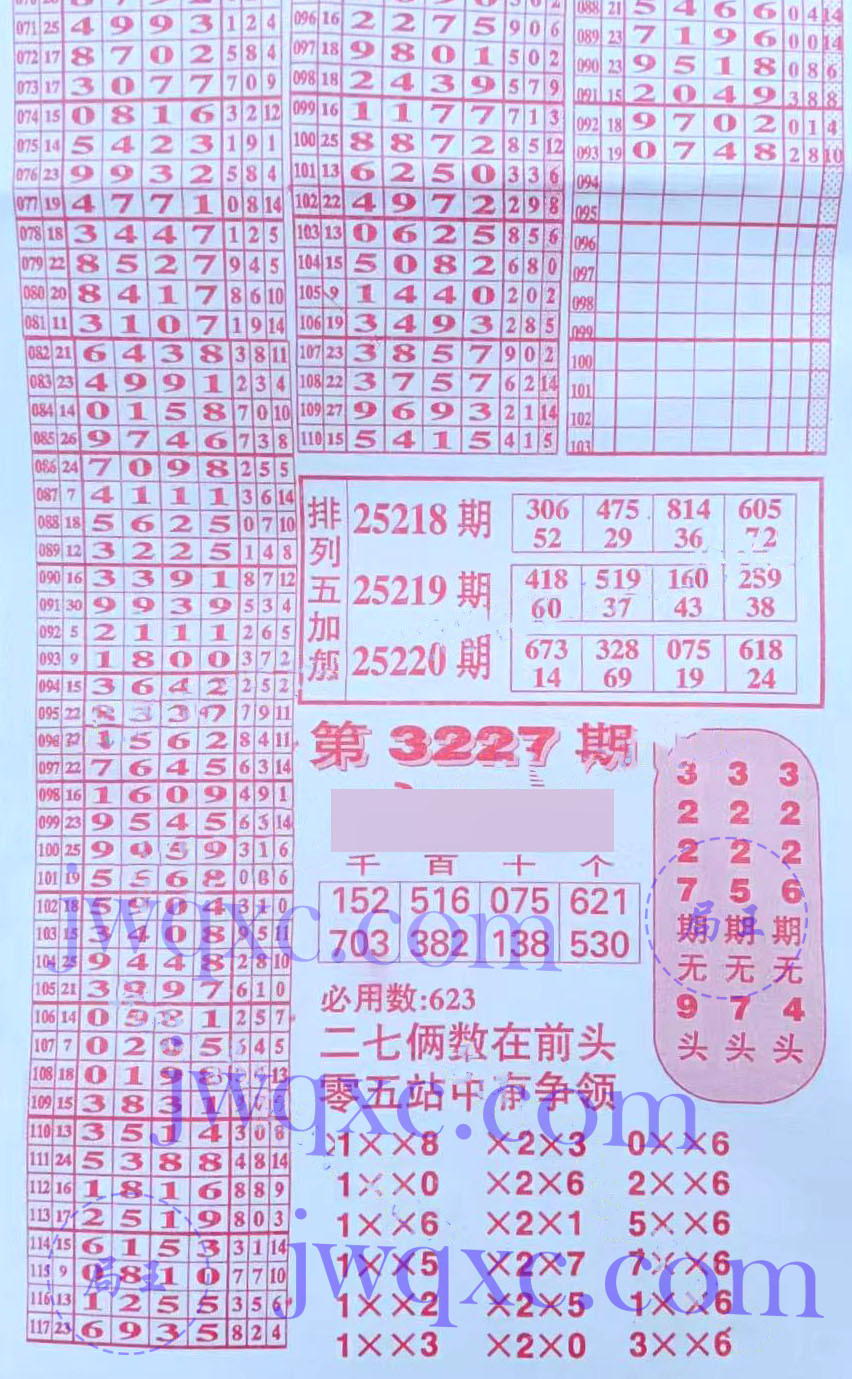 071 25 4 9 9 3 1 2 4
072 17 8 7 0 2 5 8 4
073 17 3 0 7 7 7 0 9
074 15 0 8 1 6 3 2 12
075 14 5 4 2 3 1 9 1
076 23 9 9 3 2 5 8 4
077 19 4 7 7 1 0 8 14
078 18 3 4 4 7 1 2 5
079 22 8 5 2 7 9 4 5
080 20 8 4 1 7 8 6 10
081 11 3 1 0 7 1 9 14
082 21 6 4 3 8 3 8 11
083 23 4 9 9 1 2 3 4
084 14 0 1 5 8 7 0 10
085 26 9 7 4 6 7 3 8
086 24 7 0 9 8 2 5 5
087 7 4 1 1 1 3 6 14
088 18 5 6 2 5 0 7 10
089 12 3 2 2 5 1 4 8
090 16 3 3 9 1 8 7 12
091 30 9 9 3 9 5 3 4
092 5 2 1 1 1 2 6 5
093 9 1 8 0 0 3 7 2
094 15 3 6 4 2 2 5 2
095 22 8 3 3 7 9 11
096 5 6 2 8 4 11
097 22 7 6 4 5 6 3 14
098 16 1 6 0 9 4 9 1
099 23 9 5 4 5 6 3 14
100 25 9 9 3 1 6
101 19 5 5 6 8 0 8 6
102 18 5 0 4 3 1 0
103 15 3 4 0 8 9 5 11
104 25 9 4 4 8 2 8 10
105 21 3 9 7 6 1 0
106 14 0 8 1 2 5 7
107 7 0 2 5 4 5
108 18 0 1 9 13
109 15 3 8 3 1
110 13 3 5 1 4 3 0 8
111 24 5 3 8 8 4 8 14
112 16 1 8 1 6 8 8 9
113 17 2 5 1 9 8 0 3
114 15 6 1 5 3 3 1 14
115 9 0 8 1 0 7 7 10
116 13 1 2 5 5 3 5 6
117 23 6 9 3 5 8 2 4
096 16 2 2 7 5 9 0 6
097 18 9 8 0 1 5 0 2
098 18 2 4 3 9 5 7 9
099 16 1 1 7 7 7 1 3
100 25 8 8 7 2 8 5 12
101 13 6 2 5 0 3 3 6
102 22 4 9 7 2 2 9 8
103 13 0 6 2 5 8 5 6
104 15 5 0 8 2 6 8 0
105 9 1 4 4 0 2 0 2
106 19 3 4 9 3 2 8 5
107 23 3 8 5 7 9 0 2
108 22 3 7 5 7 6 2 14
109 27 9 6 9 3 2 1 14
110 15 5 4 1 5 4 1 5
088 21 5 4 6 6 0 4 14
089 23 7 1 9 6 0 0 14
090 23 9 5 1 8 0 8 6
091 15 2 0 4 9 3 8 8
092 18 9 7 0 2 0 1 4
093 19 0 7 4 8 2 8 10
094
095
096
097
098
099
100
101
102
103
排列五加
25218期 306 475 814 605
52 29 36 72
25219期 418 519 160 259
60 37 43 38
25220期 673 328 075 618
14 69 19 24
第3227期
千 百 十 个
152 516 075 621
703 382 138 530
必用数:623
二七俩数在前头
零五站中有争领
1××8 ×2×3 0××6
1××0 ×2×6 2××6
1××6 ×2×1 5××6
1××5 ×2×7 7××6
1××2 ×2×5 1××6
1××3 ×2×0 3××6
3227期无9头
3225期无7头
3226期无4头
局王
jwqxc.com
jwqxc.com
jwqxc.com
局王